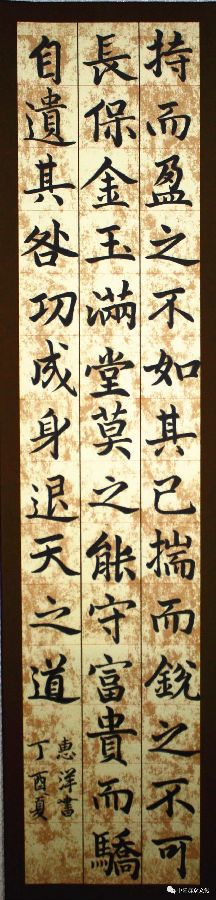 持而盈之不如其己揣而銳之不可
長保金玉滿堂莫之能守富貴而驕
自遺其咎功成身退天之道
惠洋書
丁酉夏